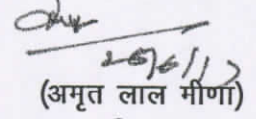 26/6/17
(अमृत लाल मीणा)